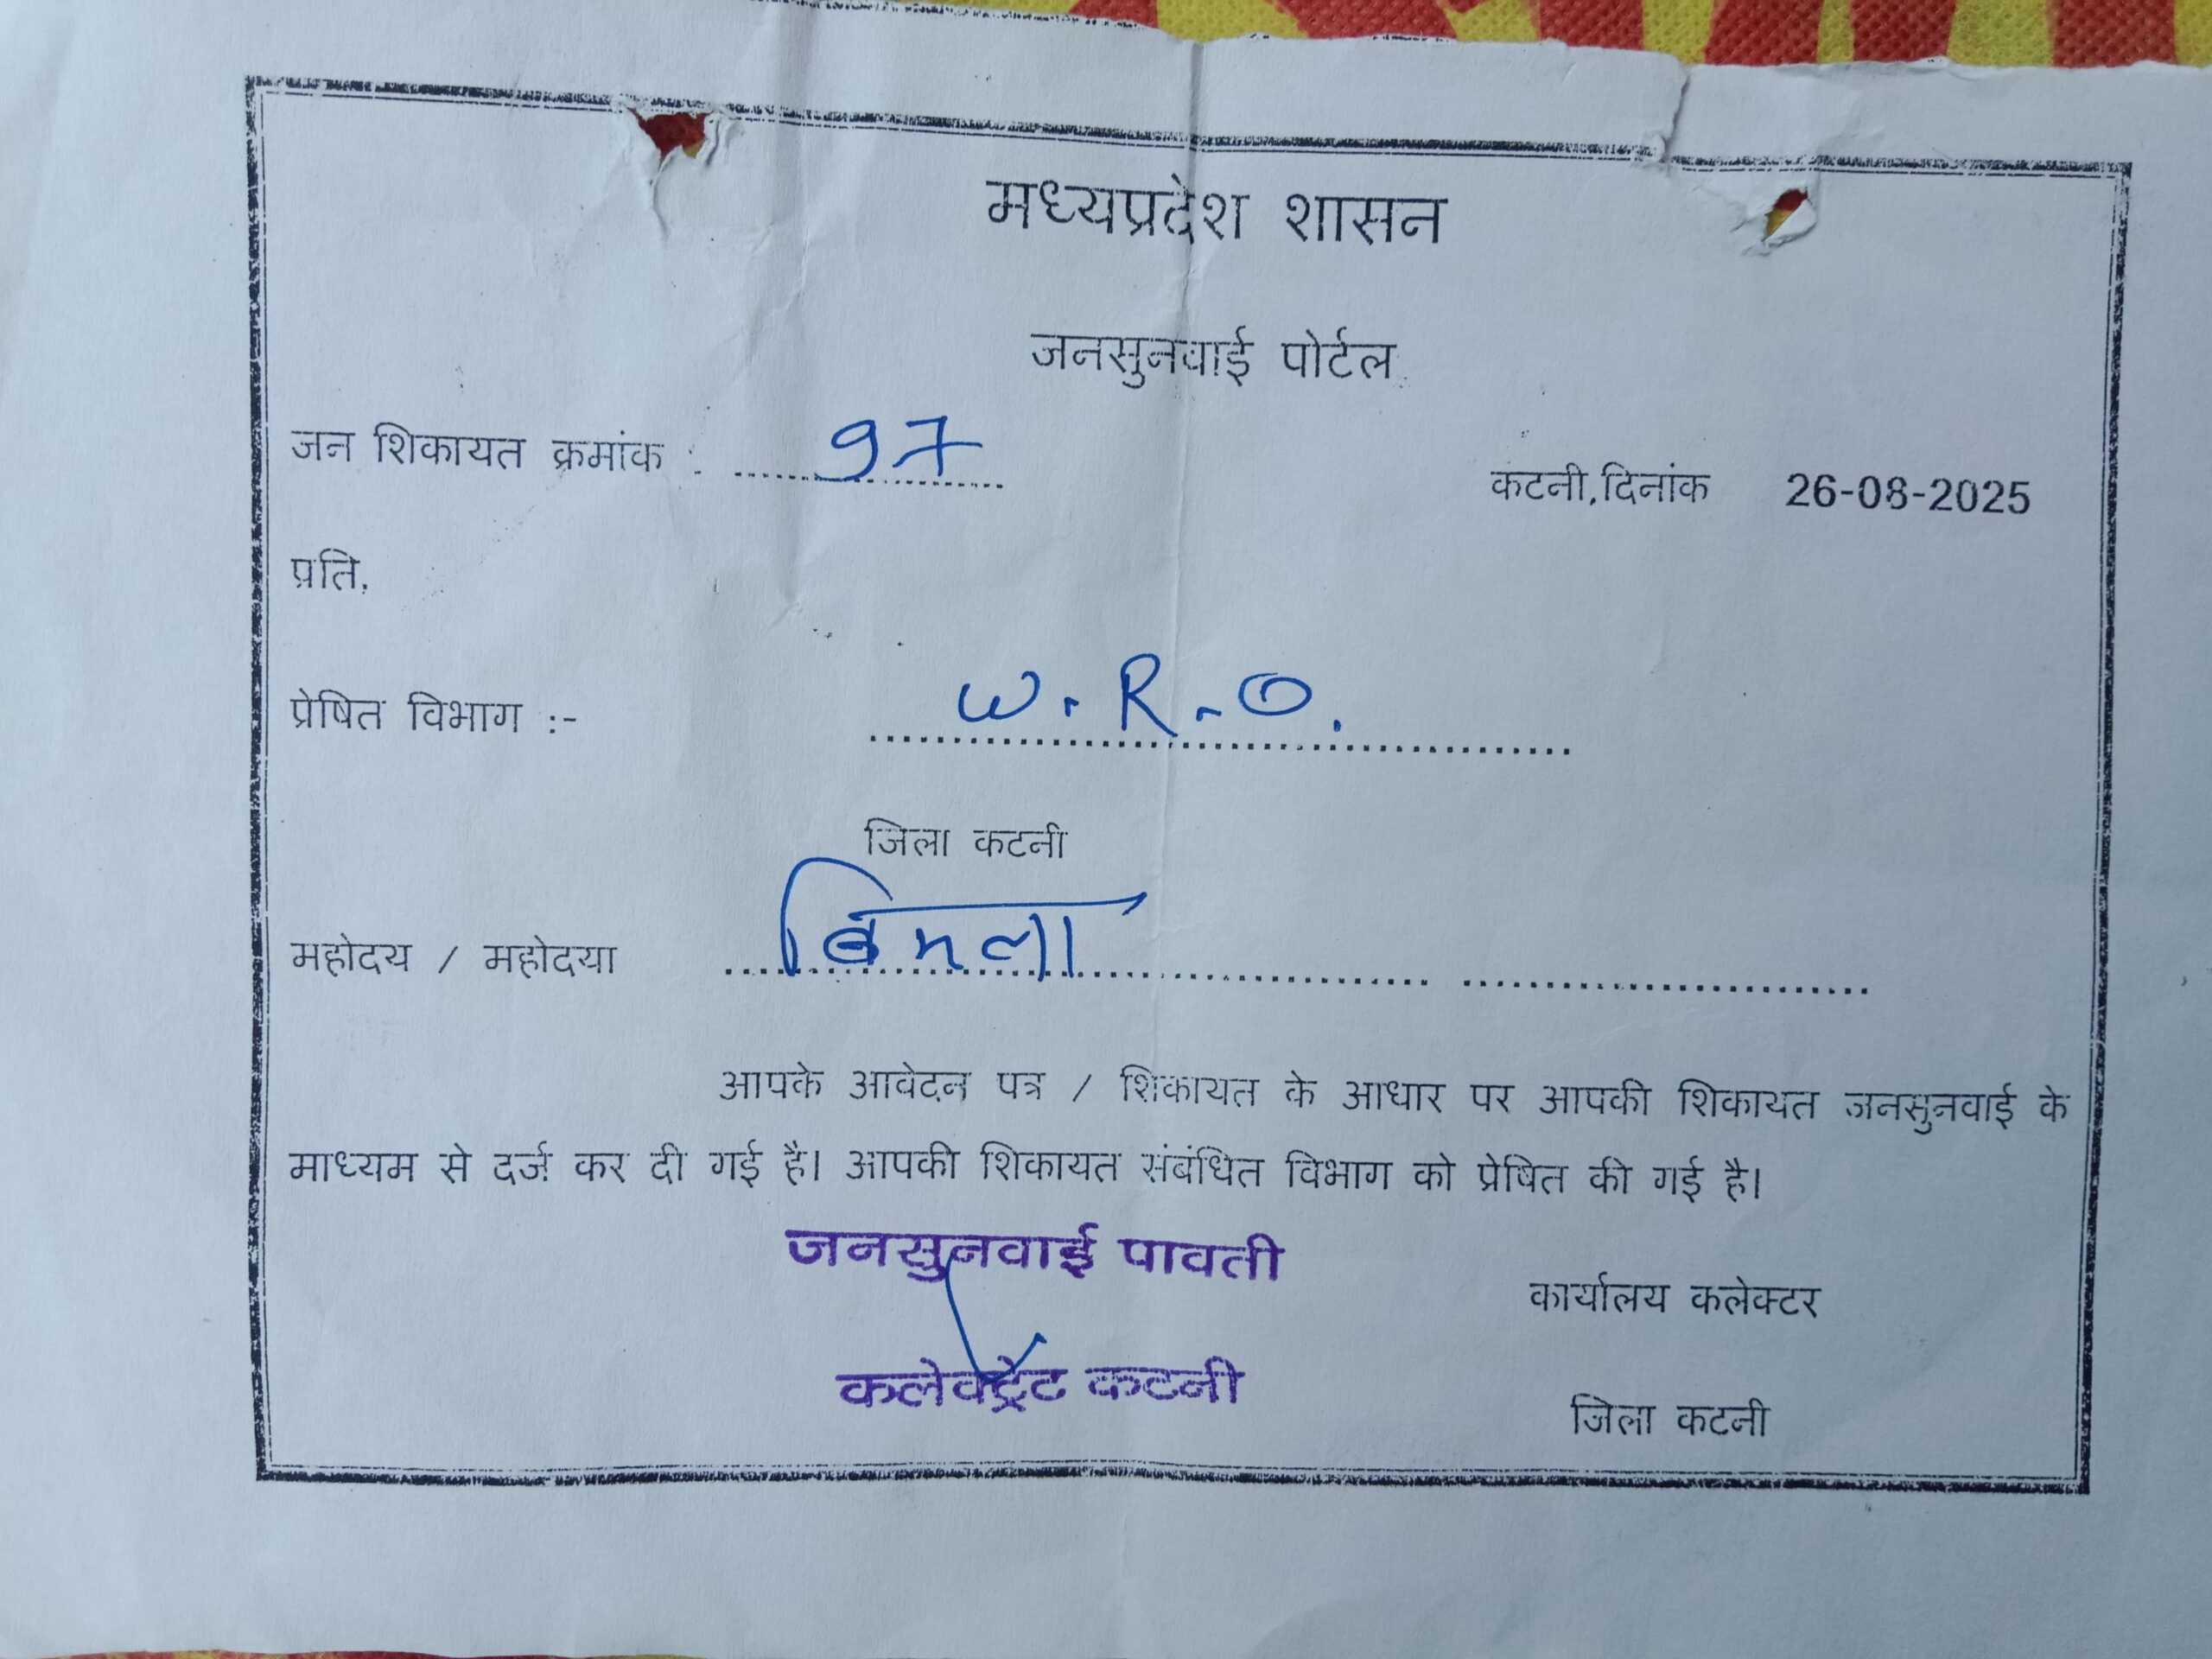 मध्यप्रदेश शासन
जनसुनवाई पोर्टल
जन शिकायत क्रमांक : 97
कटनी,दिनांक 26-08-2025
प्रति,
प्रेषित विभाग :- W.R.O.
जिला कटनी
महोदय / महोदया बिमला
आपके आवेदन पत्र / शिकायत के आधार पर आपकी शिकायत जनसुनवाई के
माध्यम से दर्ज कर दी गई है। आपकी शिकायत संबंधित विभाग को प्रेषित की गई है।
जनसुनवाई पावती
कार्यालय कलेक्टर
कलेक्ट्रेट कटनी
जिला कटनी